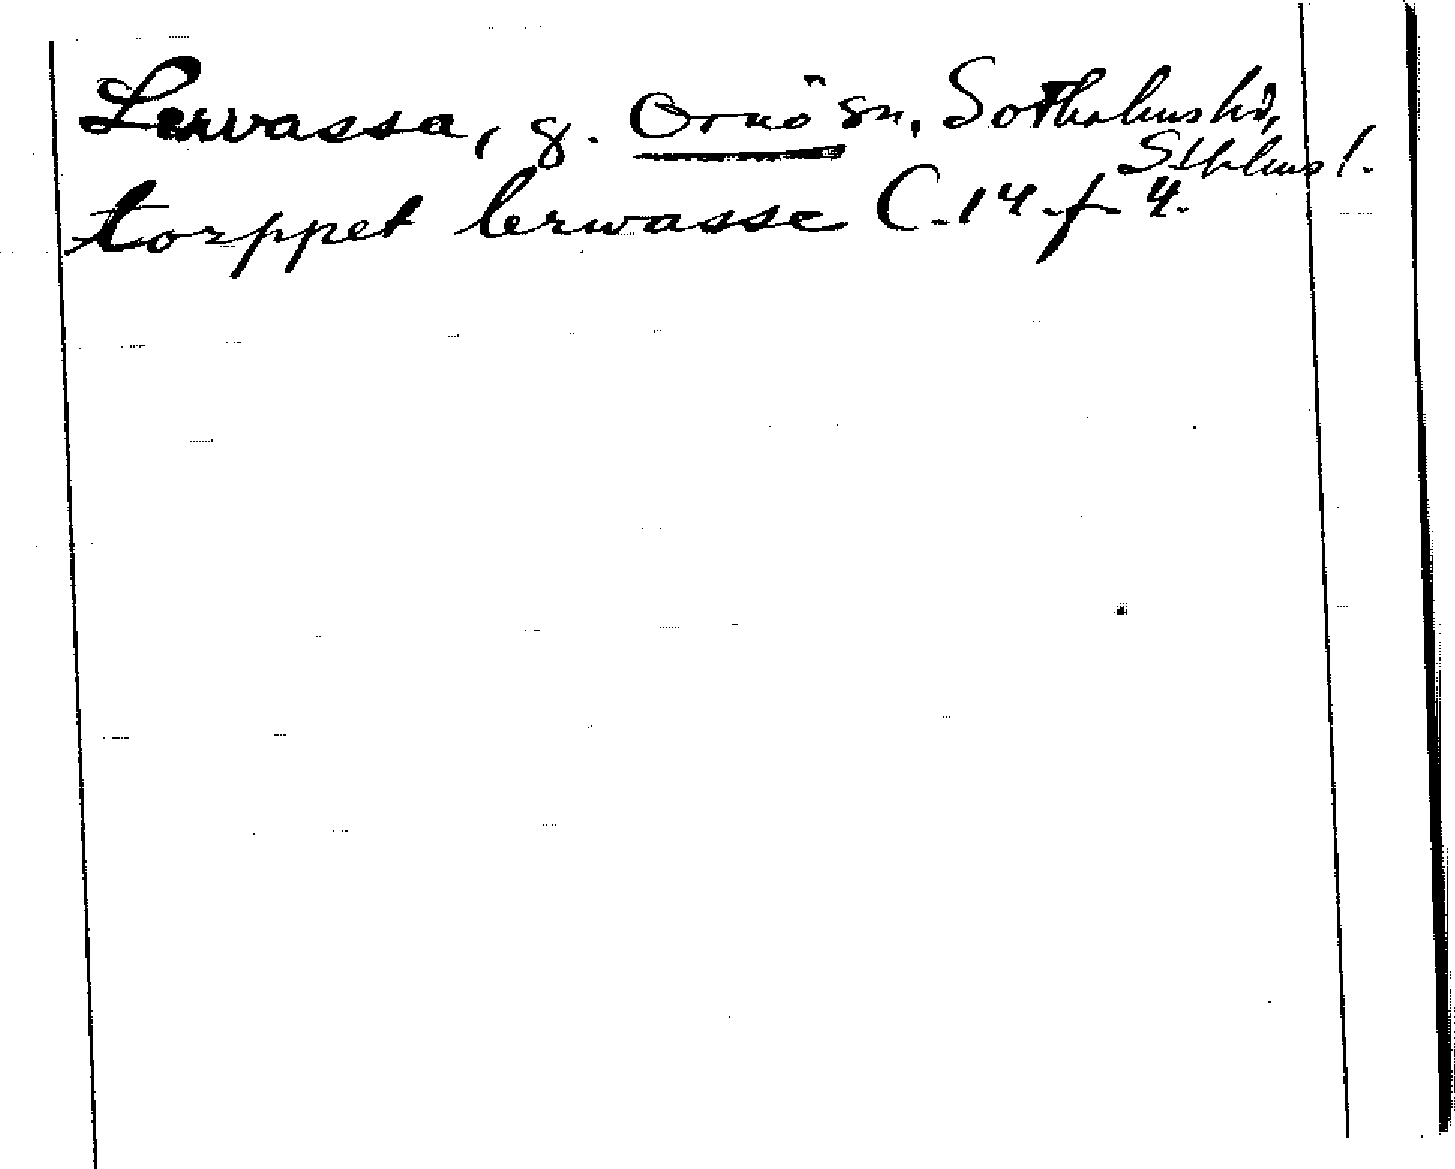 Lervassa, g. Ornö sn, Sotholms hd,
Sthlms l.
torppet lerwasse C. 14. f. 4.